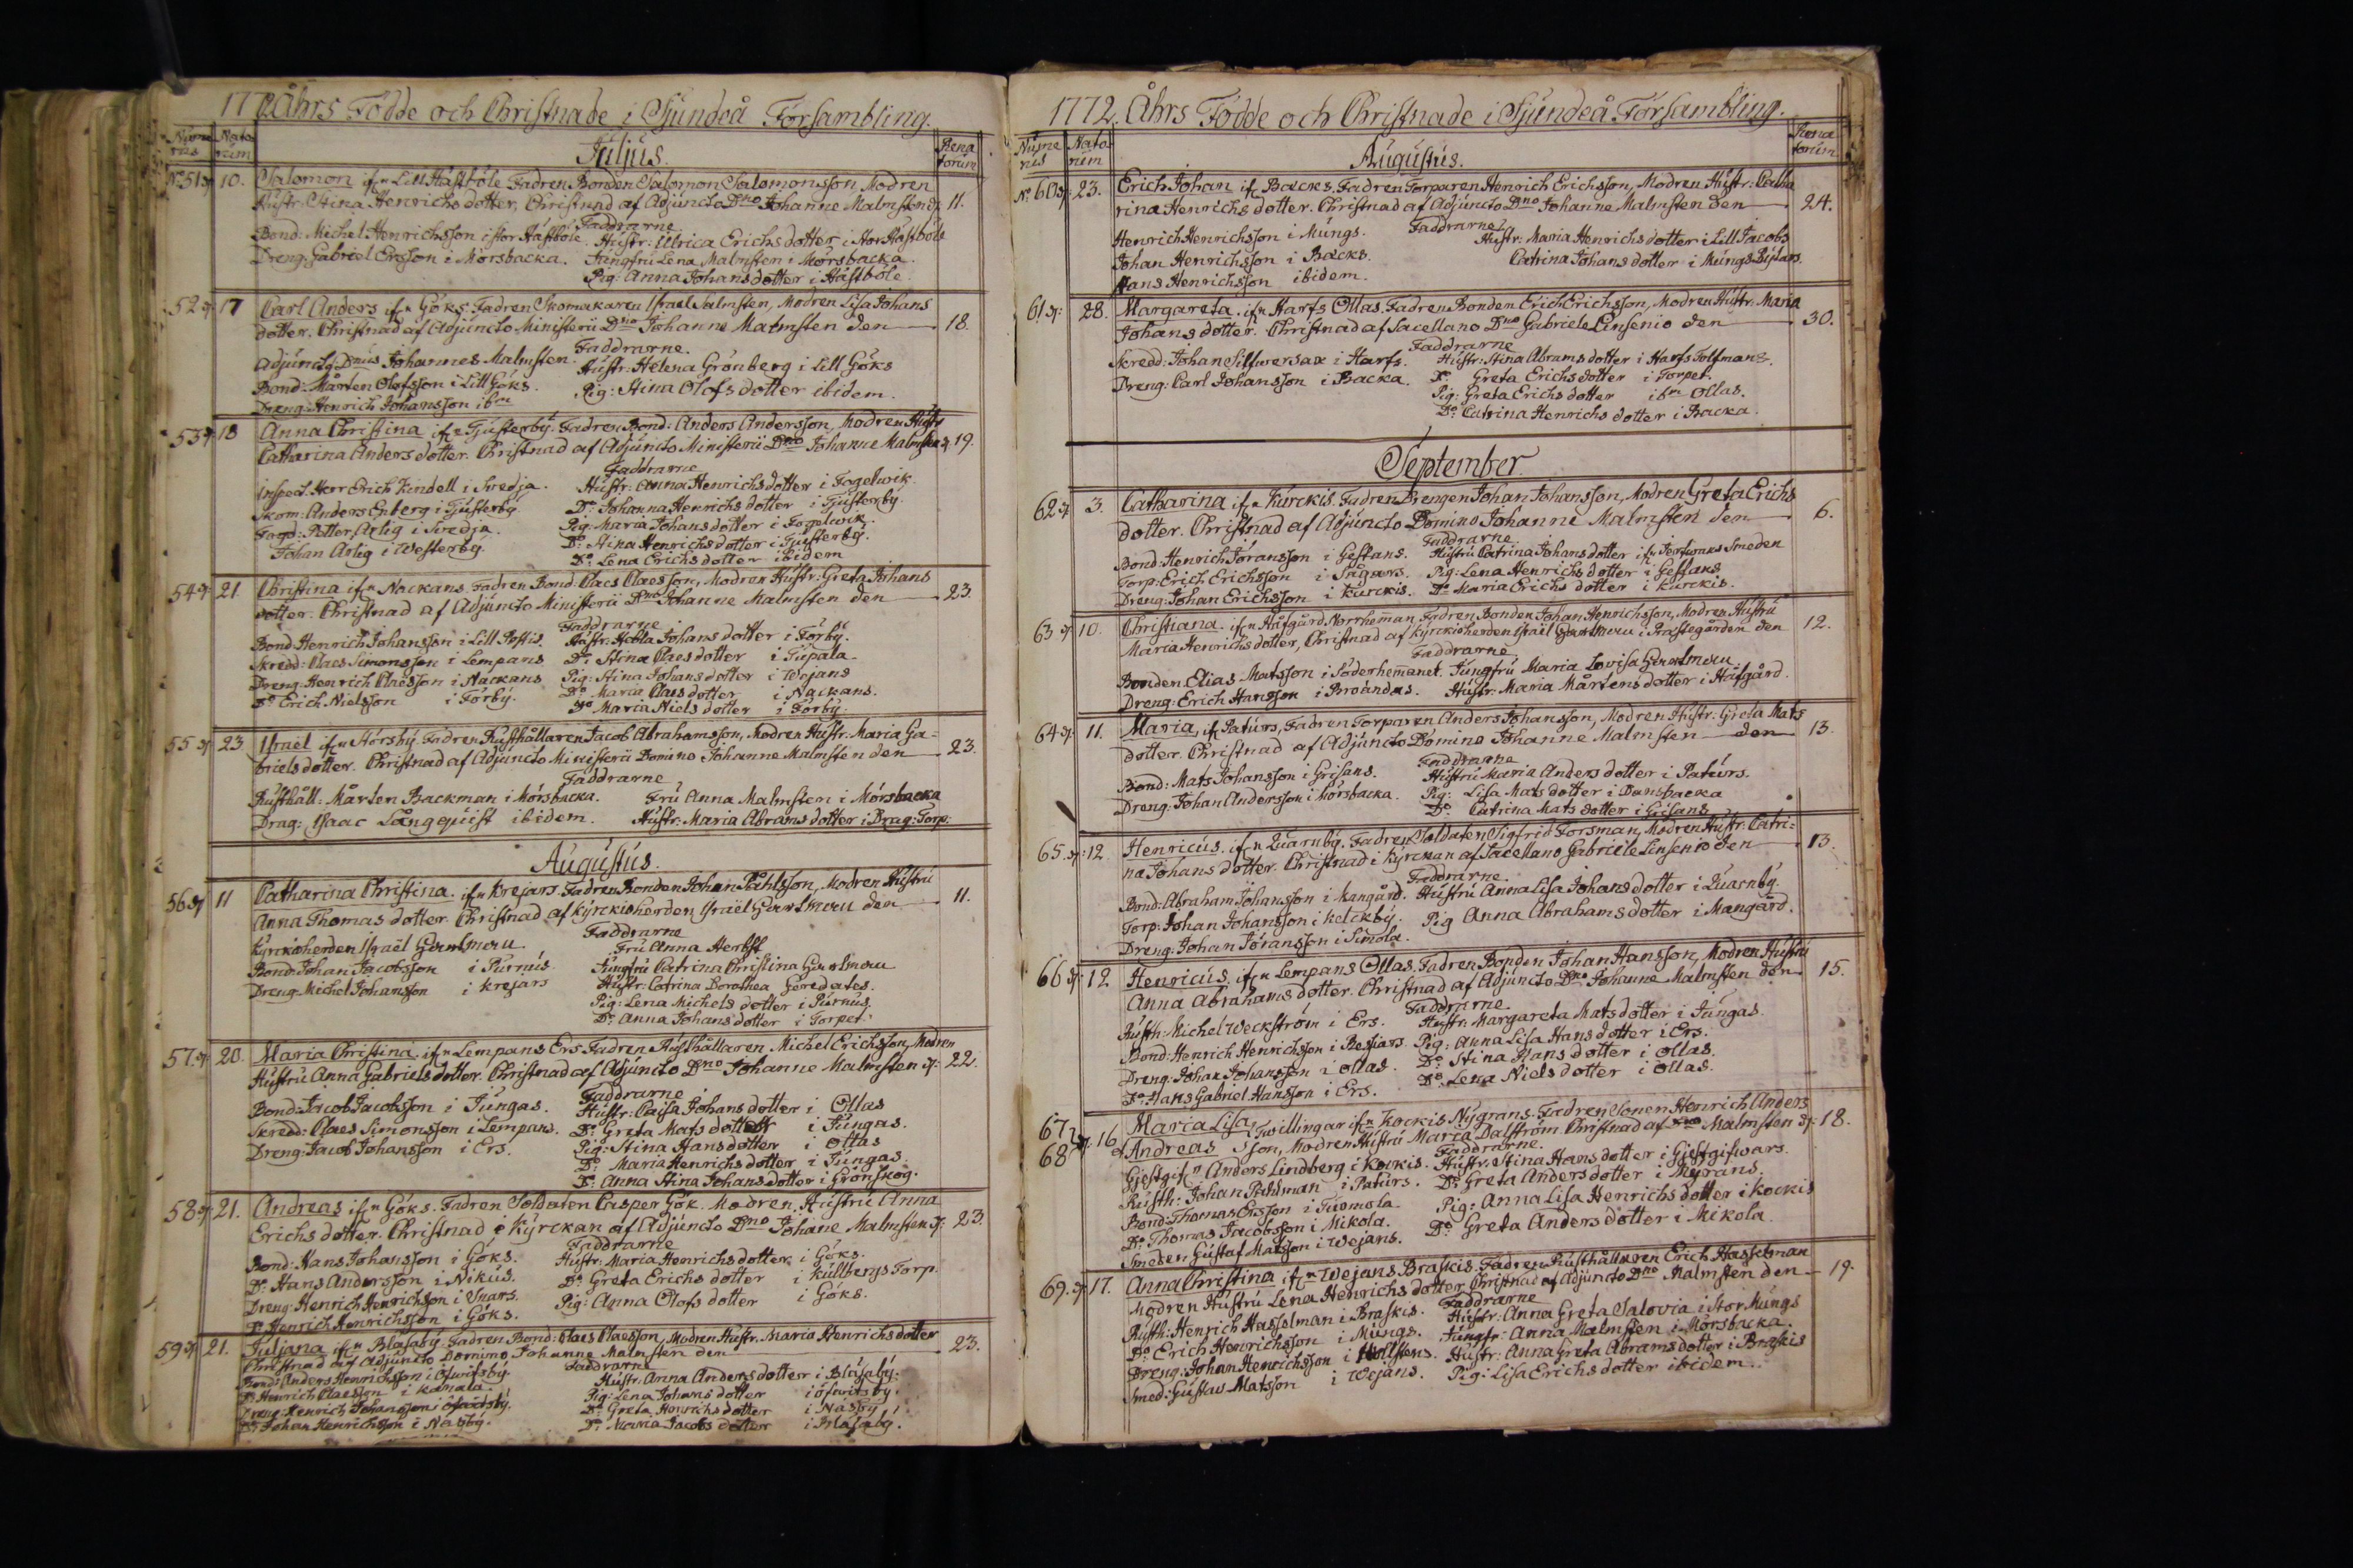 1772 Åhrs Födde och Christnade i Sjundeå Försambling.
Nume rus Nato rum Rena torum
Julius.
No 51 d. 10. Salomon ifrn Lill Hästböle Fadren Bonden Salomon Salomonsson Modren
Hustr: Stina Henrichs dotter, Christnad af Adjuncto Dno Johanne Malmsten d. 11.
Faddrarne
Bond: Michel Henrichsson i stor Hästböle. Hustr: Ulrica Erichs dotter i Stor Hästböle
Dreng: Gabriel Ersson i Morsbacka. Jungfru Lena Malmsten i Morsbacka.
Pig: Anna Johans dotter i Hästböle
52 d. 17 Carl Anders ifrn Göks. Fadren Skomakaren Israel Malmsten, Modren Lisa Johans
dotter. Christnad af Adjuncto Ministerii Dno Johanne Malmsten den 18.
Faddrarne.
Adjunctg Dnus Johannes Malmsten. Hustr: Helena Grönberg i Lill Göks
Bond: Mårten Olofsson i Lill Göks. Pig: Stina Olofs dotter ibidem.
Dreng: Henrich Johansson ibm
53 d. 18 Anna Christina ifrn Tjusterby. Fadren Bond: Anders Andersson, Modren Hustr
Catharina Anders dotter. Christnad af Adjuncto Ministerii Dno Johanne Malmsten d. 19.
Faddrarne
Inspect. Herr Erich Kindell i Svedja. Hustr: Anna Henrichs dotter i Fogelwik.
Skom: Anders Enberg i Tjusterby. Do Johanna Henrichs dotter i Tjusterby.
Fogd: Petter Arlig i Svedja. Pig: Maria Johans dotter i Fogelwik.
Johan Arlig i Westerby. Do Stina Henrichs dotter i Tjusterby.
Do Lena Erichs dotter ibidem
54 d. 21. Christina ifrn Nackans Fadren Bond. Claes Claesson, Modren Hustr: Greta Johans
dotter. Christnad af Adjuncto Ministerii Dno Johanne Malmsten den 23.
Faddrarne
Bond Henrich Johansson i Lill Postis. Hustr: Hebla Johans dotter i Förby.
Skredd: Claes Simonsson i Lempans Do Stina Claes dotter i Tupala
Dreng: Henrich Claesson i Nackans Pig: Stina Johans dotter i Wejans
Do Erich Nielsson i Förby. Do Maria Claes dotter i Nackans.
Do Maria Niels dotter i Förby.
55 d. 23. Israël ifrn Störsby. Fadren Rusthållaren Jacob Abrahamsson, Modren Hustr. Maria Ga-
briels dotter. Christnad af Adjuncto Ministerii Domino Johanne Malmsten den 23.
Faddrarne
Rusthåll: Mårten Backman i Morsbacka. Fru Anna Malmsten i Morsbacka
Drag: Isaac Längquist ibidem. Hustr: Maria Abrams dotter i Drag: Torp.
Augustus.
56 d 11 Catharina Christina. ifrn Krejars. Fadren Bonden Johan Påhlsson, Modren Hustru
Anna Thomas dotter. Christnad af Kyrckioherden Israël den 11.
Faddrarne
Kyrckioherden Israël Fru Anna Herbst
Bond: Johan Jacobsson i Purnus Jungfru Catrina Christina
Dreng Michel Johansson i Krejars Hustr: Catrina Dorothea
Pig: Lena Michels dotter i Purnus.
Do Anna Johans dotter i Torpet.
57. d. 20. Maria Christina. ifrn Lempans Ers Fadren Rusthållaren Michel Erichsson, Modren
Hustru Anna Gabriels dotter. Christnad af Adjuncto Dno Johanne Malmsten d. 22.
Faddrarne
Bond: Jacob Jacobsson i Jungas. Hustr: Caisa Johans dotter i Ollas
Skredd: Claes Simonsson i Lempans. Do Greta Mats dotter i Jungas.
Dreng: Jacob Johansson i Ers. Pig: Stina Hans dotter i Ollas
Do Maria Henrichs dotter i Jungas.
Do Anna Stina Johans dotter i Grönskog.
58 d. 21. Andreas ifrn Göks. Fadren Soldaten Casper Gök. Modren, Hustru Anna
Erichs dotter. Christnad i Kyrckan af Adjuncto Dno Johane Malmsten d. 23.
Faddrarne
Bond: Hans Johansson i Göks. Hustr: Maria Henrichs dotter i Göks.
Do Hans Andersson i Nikus. Do Greta Erichs dotter i Kullbergs Torp.
Dreng: Henrich Henrichsson i Snars. Pig: Anna Olofs dotter i Göks.
Do Henrich Henrichsson i Göks.
59 d. 21. Juljana ifrn Blåsaby. Fadren Bond: Claes Claesson, Modren Hustr. Maria Henrichs dotter
Christnad af Adjuncto Domino Johanne Malmsten den 23.
Faddrarne
Bond: Anders Henrichsson i Ofwitsby. Hustr: Anna Anders dotter i Blåsaby.
Do Henrich Claesson i Kanala. Pig: Lena Johans dotter i Ofwitsby.
Dreng: Henrich Johansson i Ofwitsby. Do Greta Henrichs dotter i Näsby
Do Johan Henrichsson i Näsby. Do Maria Jacobs dotter i Blåsaby.
1772. Åhrs Födde och Christnade i Sjundeå Försambling.
Nume rus Nato rum Rena torum
Augustus.
No 60 d. 23. Erich Johan if Backs. Fadren Torparen Henrich Erichsson, Modren Hustr: Catha
rina Henrichs dotter. Christnad af Adjuncto Dno Johanne Malmsten den 24.
Faddrarne
Henrich Henrichsson i Mungs. Hustr: Maria Henrichs dotter i Lill Jacobs
Johan Henrichsson i Backs. Catrina Johans dotter i Mungs Bylars.
Hans Henrichsson ibidem.
61 d. 28. Margareta. ifrn Harfs Ollas. Fadren Bonden Erich Erichsson, Modren Hustr. Maria
Johans dotter. Christnad af Sacellano Dno Gabriele Linsenio den 30.
Faddrarne
Skredd: Johan Silfwersax i Harfs. Hustr: Stina Abrams dotter i Harfs Tolfmans.
Dreng: Carl Johansson i Backa. Do Greta Erichs dotter i Torpet.
Pig: Greta Erichs dotter ibm Ollas.
Do Catrina Henrichs dotter i Backa.
September.
62 d. 3. Catharina ifrn Kurckis. Fadren Drengen Johan Johansson, Modren Greta Erichs
dotter. Christnad af Adjuncto Domino Johanne Malmsten den 6.
Faddrarne
Bond: Henrich Göransson i Gestans. Hustru Catrina Johans dotter Smeden
Torp: Erich Erichsson i Sågars. Pig: Lena Henrichs dotter i Gestans
Dreng: Johan Erichsson i Kurckis. Do Maria Erichs dotter i Kurckis.
63 d 10. Christiana. ifrn Håfgård Norrhemman Fadren Bonden Johan Henrichsson, Modren Hustru
Maria Henrichs dotter, Christnad af Kyrckioherden Israël i Prästegården den 12.
Faddrarne
Bonden Elias Matsson i Söderhemanet. Jungfru Maria Lovisa
Dreng: Erich Hansson i Broändas. Hustr: Maria Mårtens dotter i Håfgård.
64 d. 11. Maria, if Paturs, Fadren Torparen Anders Johansson, Modren Hustr: Greta Mats
dotter. Christnad af Adjuncto Domino Johanne Malmsten den 13.
Faddrarne
Bond: Mats Johansson i Grisans. Hustru Maria Anders dotter i Paturs.
Dreng: Johan Andersson i Morsbacka. Pig: Lisa Mats dotter i Dansbacka
Do Catrina Mats dotter i Grisans
65. d: 12. Henricus. ifrn Quarnby. Fadren Soldaten Sigfrid Forsman, Modren Hustr: Catri-
na Johans dotter. Christnad i Kyrckan af Sacellano Gabriele Linsenio den 13.
Faddrarne.
Bond: Abraham Johansson i Mangård. Hustru Anna Lisa Johans dotter i Quarnby.
Torp: Johan Johansson i Kelckby. Pig Anna Abrahams dotter i Mangård.
Dreng: Johan Göransson i Simola.
66 d: 12 Henricus. ifrn Lempans Ollas. Fadren Bonden Johan Hansson, Modren Hustru
Anna Abrahams dotter. Christnad af Adjuncto Dno Johanne Malmsten den 15.
Faddrarne
Rusth: Michel Weckström i Ers. Hustr: Margareta Mats dotter i Jungas.
Bond: Henrich Henrichsson i Bessars. Pig: Anna Lisa Hans dotter i Ers.
Dreng: Johan Johansson i Ollas. Do Stina Hans dotter i Ollas.
Do Hans Gabriel Hansson i Ers. Do Lena Niels dotter i Ollas.
67 Maria Lisa, Twillingar ifrn Kockis Nygrans. Fadren Sonen Henrich Anders
68 d. 16. et Andreas sson, Modren Hustru Maria Dalström. Christnad af Dno Malmsten d. 18.
Faddrarne.
Gjestgifn Anders Lindberg i Kockis. Hustr. Stina Hans dotter i Gjestgifwars.
Rusth: Johan Påhlman i Paturs. Do Greta Anders dotter i Nygrans.
Bond: Thomas Ersson i Tuomola. Pig: Anna Lisa Henrichs dotter i Kockis
Do Thomas Jacobsson i Mikola. Do Greta Anders dotter i Mikola.
Smeden Gustaf Matsson i Wejans.
69. d 17. Anna Christina ifrn Wejans Braskis. Fadren Rusthållaren Erich Hasselman
Modren Hustru Lena Henrichs dotter. Christnad af Adjuncto Dno Malmsten den 19.
Faddrarne
Rusth: Henrich Hasselman i Braskis. Hustr: Anna Greta Salovia i Stor Mungs
Do Erich Henrichsson i Mungs. Jungfr: Anna Malmsten i Morsbacka.
Dreng: Johan Henrichsson i Hollstens. Hustr: Anna Greta Abrams dotter i Braskis
Smed: Gustav Matsson i Wejans. Pig: Lisa Erichs dotter ibidem.